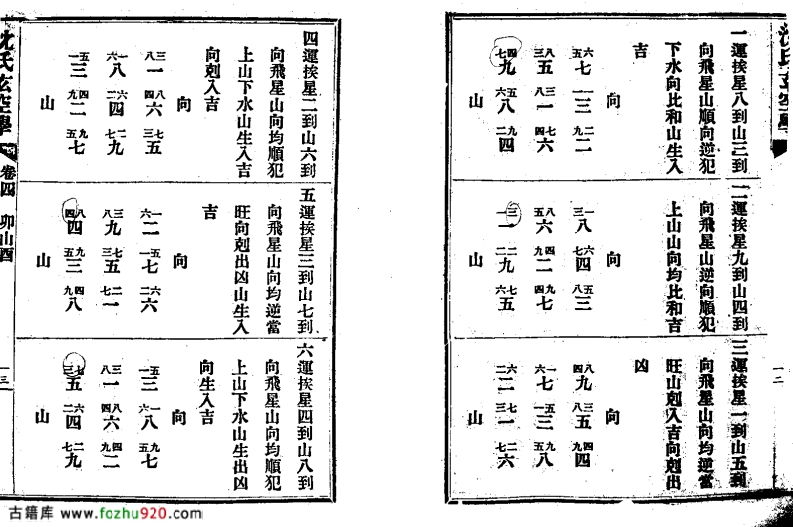 一運挨星八到山三到
向飛星山順向逆犯
下水向比和山生入
吉
向
五六七 一一三 九二二
三八五 八三一 四七六
七四九 六五八 二九四
山
二運挨星九到山四到
向飛星山逆向順犯
上山山向均比和吉
向
三一八 七六四 八五三
五八六 九四二 四九七
一三一 二二九 六七五
山
三運挨星一到山五到
向飛星山向均逆當
旺山剋入吉向剋出
凶
向
四八九 八三五 九四四
六一七 一五三 五九八
二六二 三七一 七二六
山
一二
四運挨星二到山六到
向飛星山向均順犯
上山下水山生入吉
向剋入吉
向
八三一 四八六 三七五
六一八 二六四 七二九
一五三 九四二 五九七
山
五運挨星三到山七到
向飛星山向均逆當
旺向剋出凶山生入
吉
向
六一二 一五七 二六六
八三九 三七五 七二一
四八四 五九三 九四八
山
六運挨星四到山八到
向飛星山向均順犯
上山下水山生出凶
向生入吉
向
一五三 六一八 五九七
八三一 四八六 九四二
三七五 二六四 七二九
山
沈氏玄空學 卷四 卯山酉 一三
古籍库 www.fozhu920.com